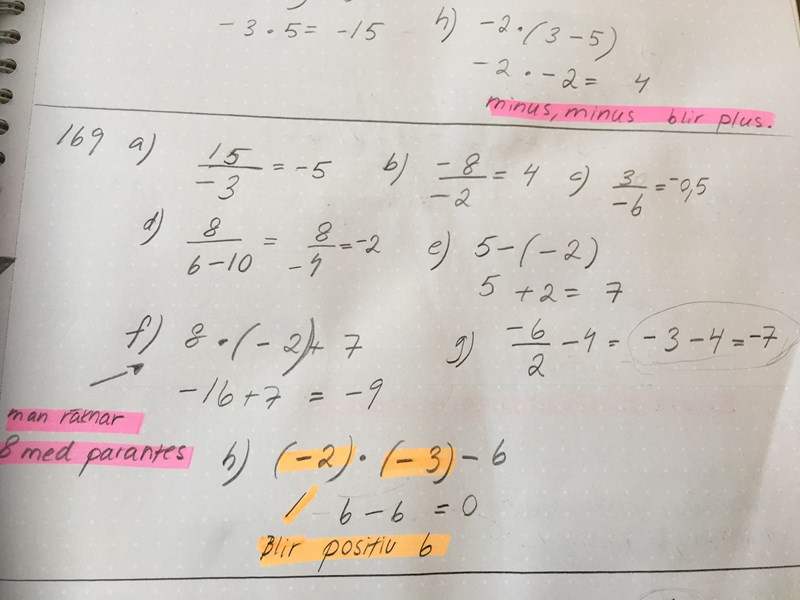 -3·5= -15
h) -2·(3-5)
-2·-2= 4
minus, minus blir plus.
169 a) 15/-3 = -5 b) -8/-2 = 4 c) 3/-6 = -0,5
d) 8/6-10 = 8/-4 = -2 e) 5-(-2)
5 +2 = 7
f) 8·(-2)+ 7 g) -6/2 -4 = -3-4=-7
-16+7 = -9
man räknar
8 med parantes
h) (-2)·(-3)-6
6-6 =0
Blir positiv 6